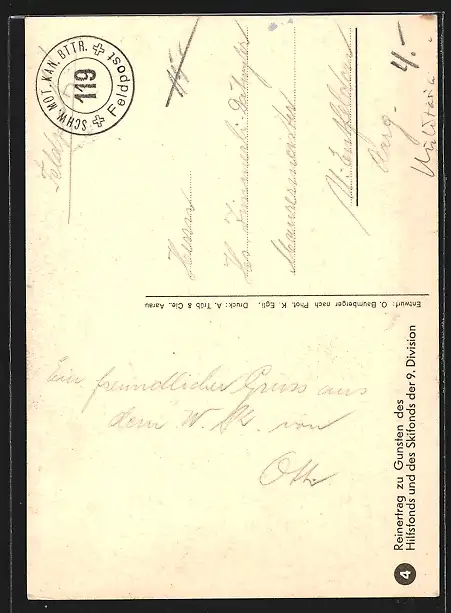 SCHW. MOT. KAN. BTTR.
119
Feldpost
Feldp
Herrn
Hs. Zimmerli
Maurermeister
Aarg.
4.-
Militaria
Entwurf: O. Baumberger nach Phot. K. Egli. Druck: A. Trüb & Cie. Aarau
Ein freundlicher Gruss aus
dem W. K. von
Otto
4 Reinertrag zu Gunsten des
Hilfsfonds und des Skifonds der 9. Division